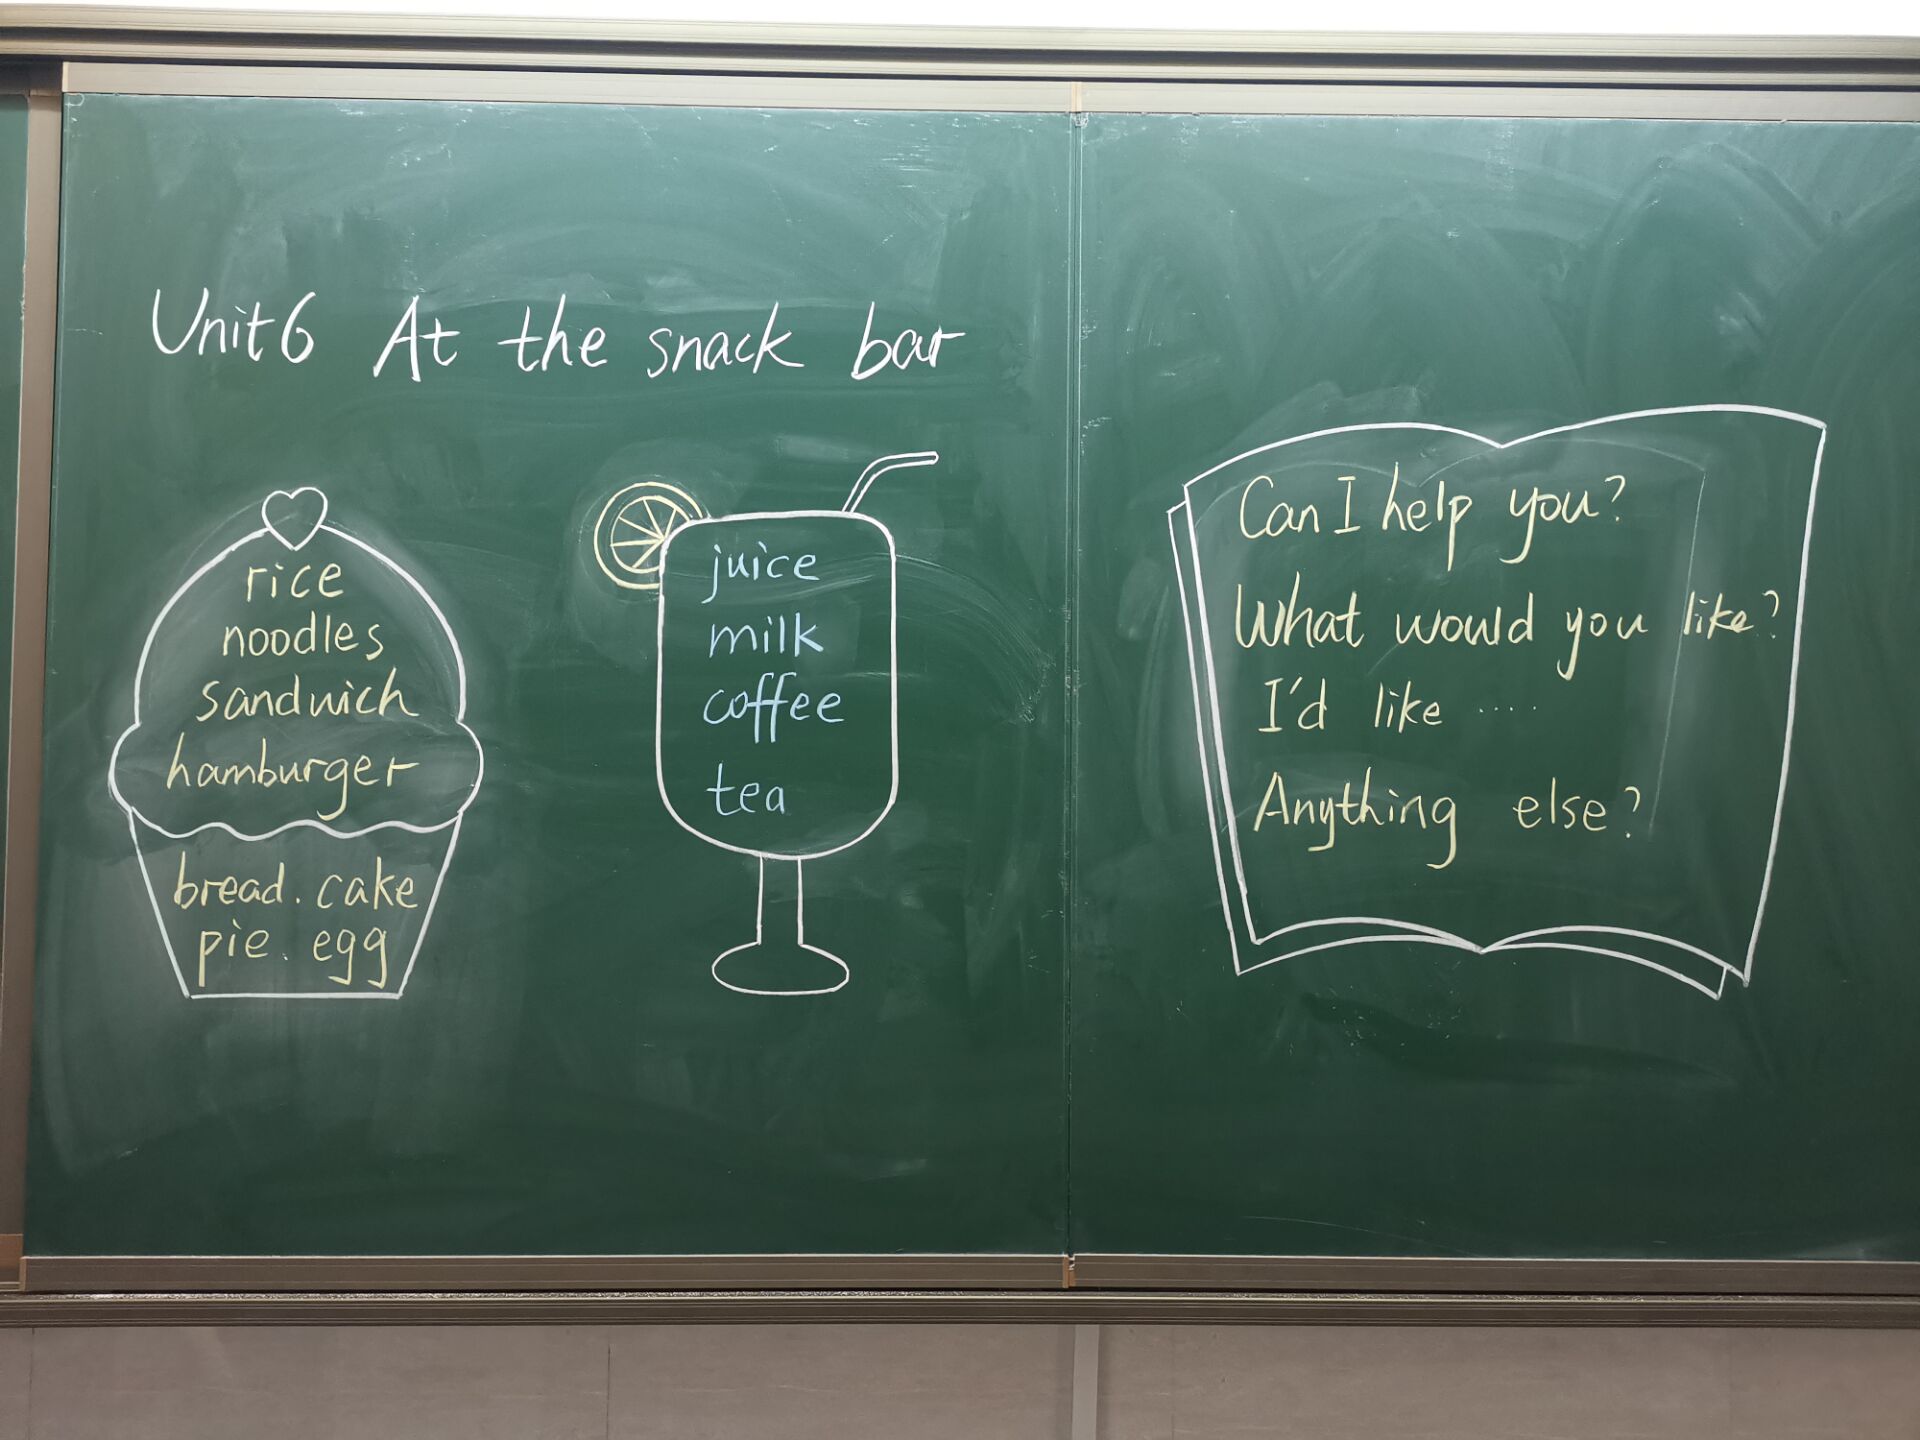 Unit6 At the snack bar
rice
noodles
sandwich
hamburger
bread. cake
pie. egg
juice
milk
coffee
tea
Can I help you?
What would you like?
I'd like ....
Anything else?